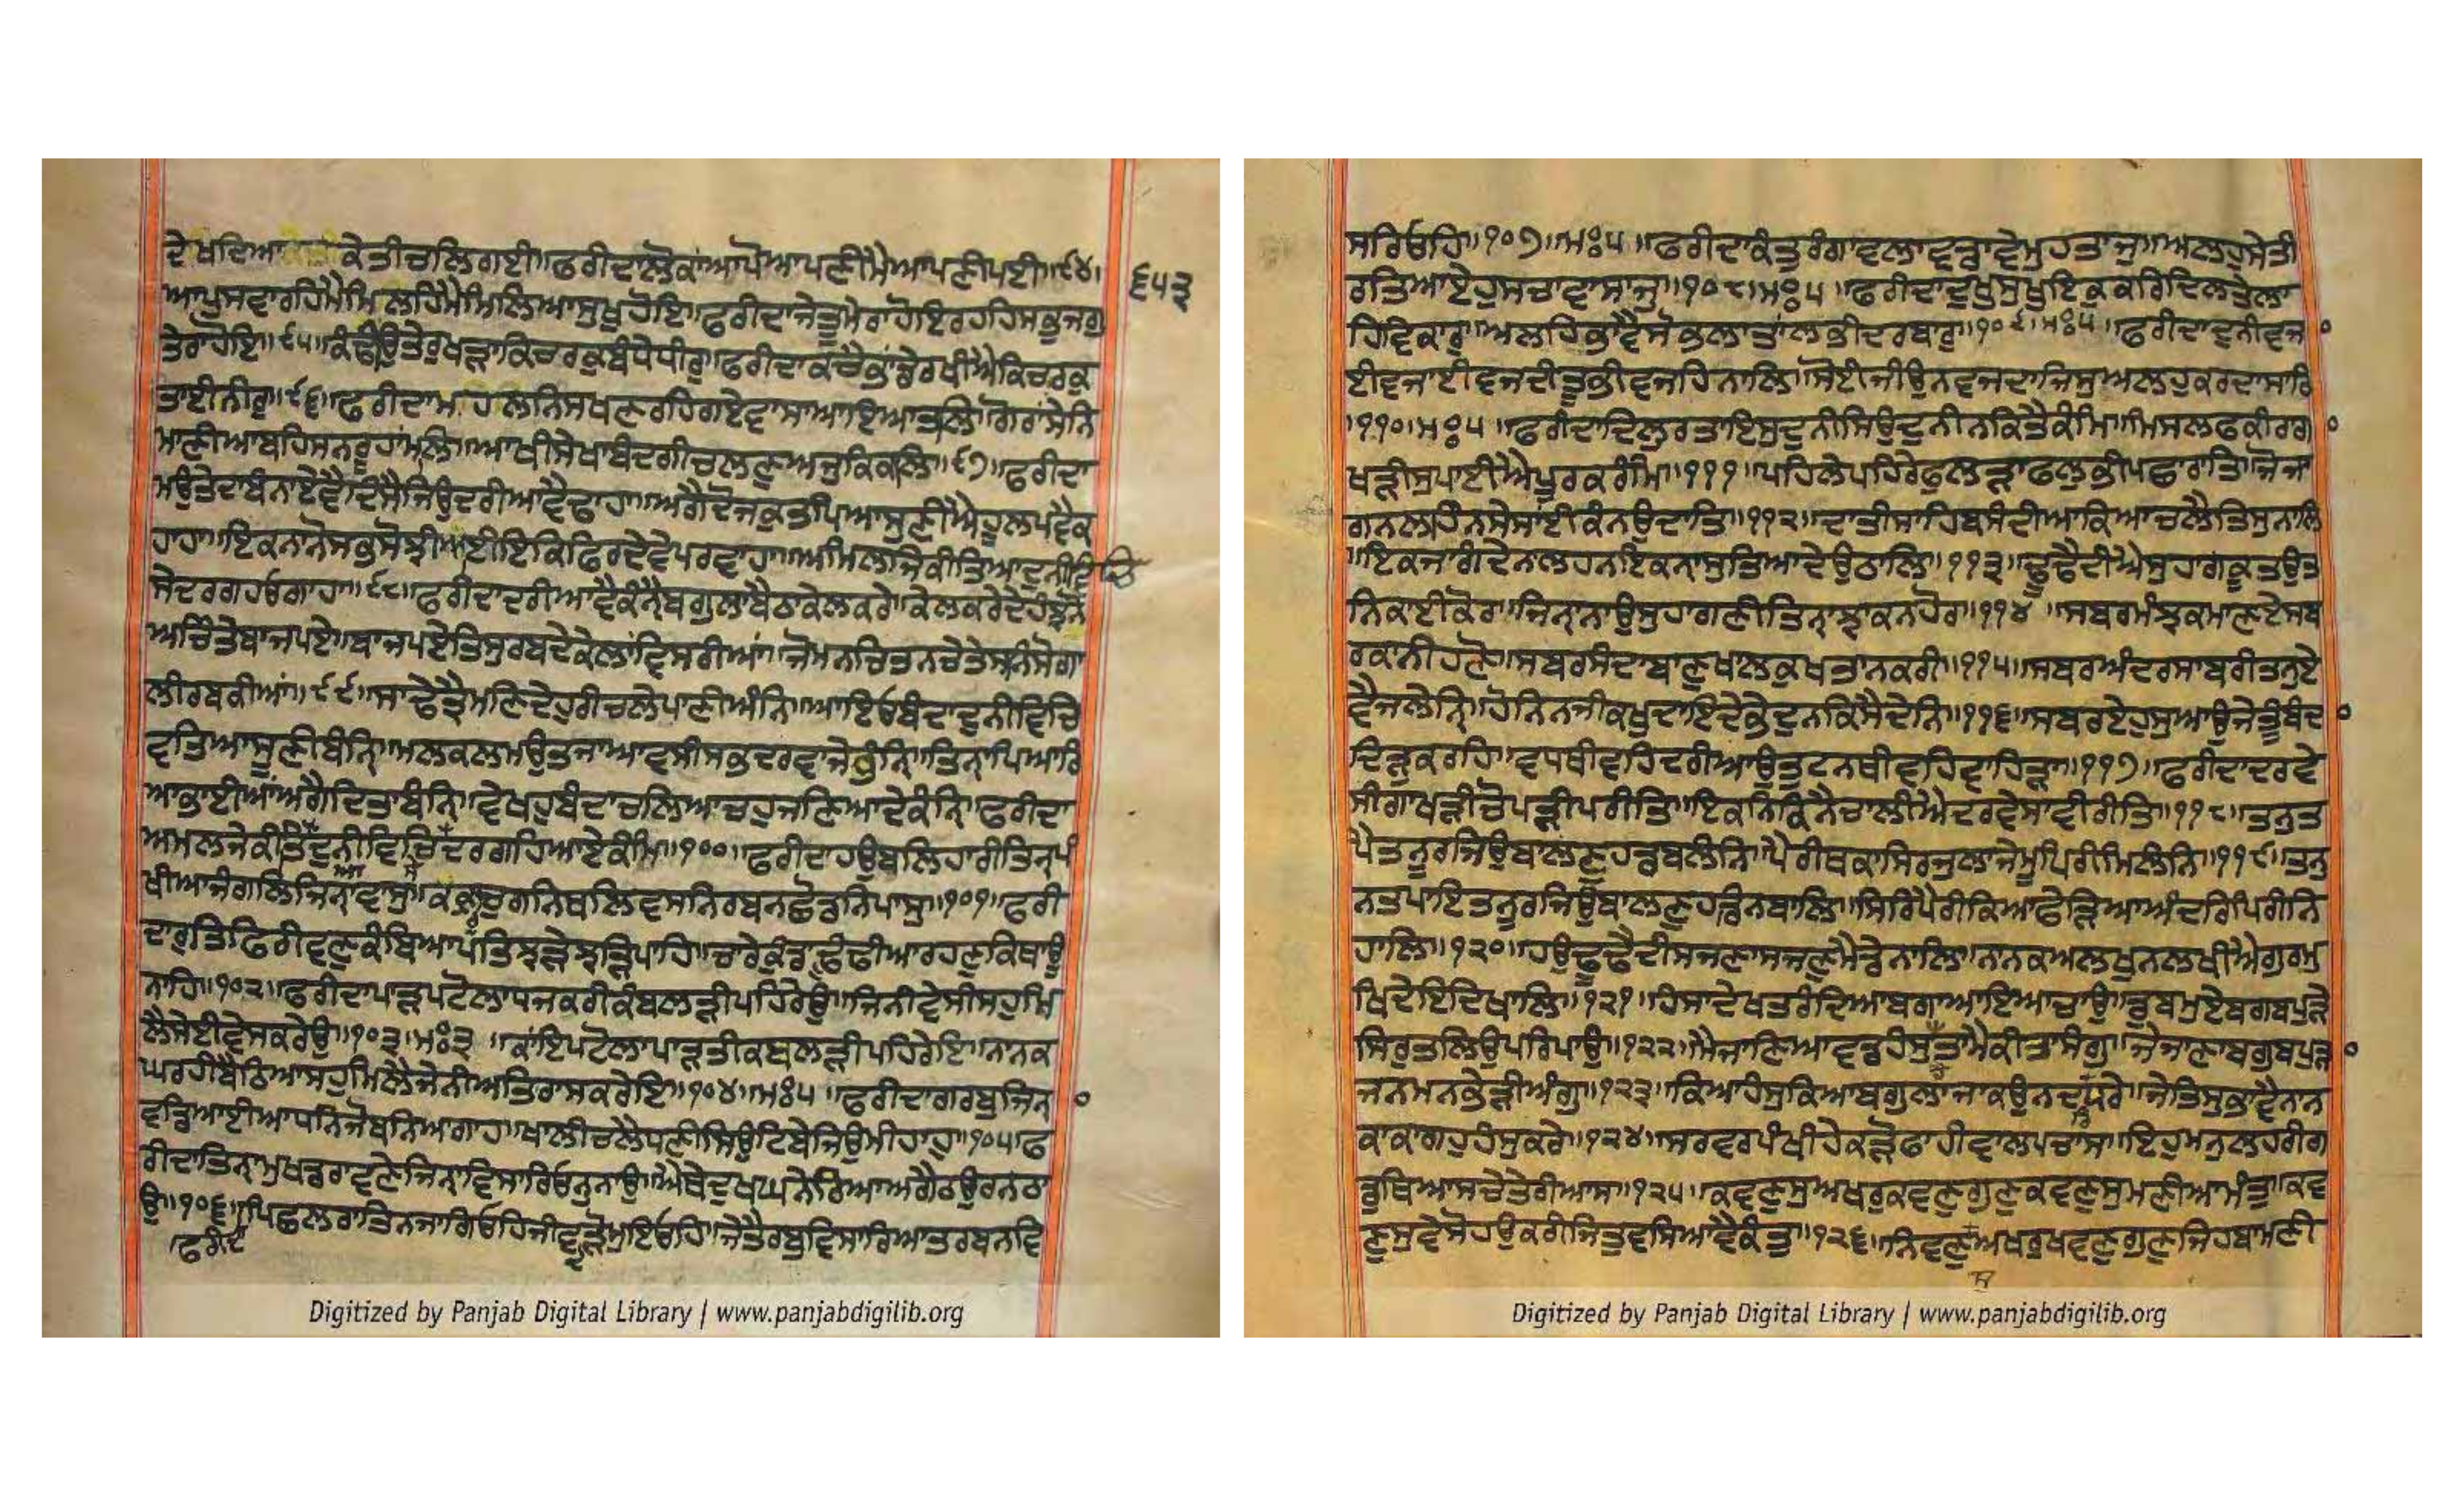 ਦੇਖਦਿਆ ਕੇਤੀਚਲਿਗਈ॥ਫਰੀਦਾਲੋਕਾਂਆਪੋਆਪਣੀਮੈਆਪਣੀਪਈ॥੯੪॥
੬੫੩
ਆਪੁਸਵਾਰਹਿਮੈਮਿਲਹਿਮੈਮਿਲਿਆਸੁਖੁਹੋਇ॥ਫਰੀਦਾਜੇਤੂਮੇਰਾਹੋਇਰਹਹਿਸਭੁਜਗੁ
ਤੇਰਾਹੋਇ॥੯੫॥ਕੰਧੀਉਤੇਰੁਖੜਾਕਿਚਰਕੁਬੰਧੇਧੀਰੁ॥ਫਰੀਦਾਕਚੈਭਾਂਡੇਰਖੀਐਕਿਚਰਕੁ
ਤਾਈਨੀਰੁ॥੯੬॥ਫਰੀਦਾਮਹਲਨਿਸਖਣਰਹਿਗਏਵਾਸਾਆਇਆਤਲਿ॥ਗੋਰਾਂਸੇਨਿ
ਮਾਣੀਆਬਹਿਸਨਰੂਹਾਂਮਲਿ॥ਆਖੀਸੇਖਾਬੰਦਗੀਚਲਣੁਅਜੁਕਿਕਲਿ॥੯੭॥ਫਰੀਦਾ
ਮਉਤੈਦਾਬੰਨਾਏਵੈਦਿਸੈਜਿਉਦਰੀਆਵੈਢਾਹਾ॥ਅਗੈਦੋਜਕੁਤਪਿਆਸੁਣੀਐਹੂਲਪਵੈਕ
ਹਾਹਾ॥ਇਕਨਾਨੋਸਭੁਸੋਝੀਆਈਇਕਿਫਿਰਦੇਵੇਪਰਵਾਹਾ॥ਅਮਲਜਿਕੀਤਿਆਦੁਨੀਵਿਚਿ
ਸੇਦਰਗਹਓਗਾਹਾ॥੯੮॥ਫਰੀਦਾਦਰੀਆਵੈਕੰਨੈਬਗੁਲਾਬੈਠਾਕੇਲਕਰੇ॥ਕੇਲਕਰੇਦੇਹੰਝਨੋ
ਅਚਿੰਤੇਬਾਜਪਏ॥ਬਾਜਪਏਤਿਸੁਰਬਦੇਕੇਲਾਂਵਿਸਰੀਆਂ॥ਜੋਮਨਚਿਤਨਚੇਤੇਸਨਿਸੋਗਾ
ਲੀਰਬਕੀਆਂ॥੯੯॥ਸਾਢੇਤ੍ਰੈਮਣਿਦੇਹੁਰੀਚਲੇਪਾਣੀਅੰਨਿ॥ਆਇਓਬੰਦਾਦੁਨੀਵਿਚਿ
ਵਤਿਆਸੂਣੀਬੰਨਿ੍॥ਮਲਕਲਮਉਤਜਾਆਵਸੀਸਭਦਰਵਾਜੇਭੰਨਿ੍॥ਤਿਨ੍ਾਪਿਆਰਿ
ਆਭਾਈਆਂਅਗੈਦਿਤਾਬੰਨਿ੍॥ਵੇਖਹੁਬੰਦਾਚਲਿਆਚਹੁਜਣਿਆਦੇਕੰਨਿ੍॥ਫਰੀਦਾ
ਅਮਲਜੇਕੀਤੇਦੁਨੀਵਿਚਿਦਰਗਹਿਆਏਕੰਮਿ॥੧੦੦॥ਫਰੀਦਾਹਉਬਲਿਹਾਰੀਤਿਨ੍ਪੰ
ਖੀਆਜੰਗਲਿਜਿਨ੍ਾਵਾਸੁ॥ਕਕਰੁਚੁਗਨਿਥਲਿਵਸਨਿਰਬਨਛੋਡਨਿਪਾਸੁ॥੧੦੧॥ਫਰੀ
ਦਾਰੁਤਿਫਿਰੀਵਣੁਕੰਬਿਆਪਤਝੜੇਝੜਿਪਾਹਿ॥ਚਾਰੇਕੁੰਡਾਢੂੰਢੀਆਰਹਣੁਕਿਥਾਉ
ਨਾਹਿ॥੧੦੨॥ਫਰੀਦਾਪਾੜਪਟੋਲਾਧਜਕਰੀਕੰਬਲੜੀਪਹਿਰੇਉ॥ਜਿਨੀਵੇਸੀਸਹੁਮਿ
ਲੈਸੇਈਵੇਸਕਰੇਉ॥੧੦੩॥ਮਃ੩॥ਕਾਇਪਟੋਲਾਪਾੜਤੀਕਬਲੜੀਪਹਿਰੇਇ॥ਨਾਨਕ
ਘਰਹੀਬੈਠਿਆਸਹੁਮਿਲੈਜੇਨੀਅਤਿਰਾਸਕਰੇਇ॥੧੦੪॥ਮਃ੫॥ਫਰੀਦਾਗਰਬੁਜਿਨ੍
ਵਡਿਆਈਆਧਨਿਜੋਬਨਿਅਗਾਹ॥ਖਾਲੀਚਲੇਧਣੀਸਿਉਟਿਬੇਜਿਉਮੀਹਾਹੁ॥੧੦੫॥ਫ
ਰੀਦਾਤਿਨਾਮੁਖਡਰਾਵਣੇਜਿਨ੍ਾਵਿਸਾਰਿਓਨੁਨਾਉ॥ਐਥੈਦੁਖਘਨੇਰਿਆਅਗੈਠਉਰਨਠਾ
ਉ॥੧੦੬॥ਪਿਛਲਰਾਤਿਨਜਾਗਿਓਹਿਜੀਵਦੜੋਮੁਇਓਹਿ॥ਜੇਤੈਰਬੁਵਿਸਾਰਿਆਤਰਬਨਵਿ
ਫਰੀਦਾ
ਸਰਿਓਹਿ॥੧੦੭॥ਮਃ੫॥ਫਰੀਦਾਕੰਤੁਰੰਗਾਵਲਾਵਡਾਵੇਮੁਹਤਾਜੁ॥ਅਲਹਸੇਤੀ
ਰਤਿਆਏਹੁਸਚਾਵਾਸਾਜੁ॥੧੦੮॥ਮਃ੫॥ਫਰੀਦਾਦੁਖੁਸੁਖੁਇਕੁਕਰਿਦਿਲਤੇਲਾ
ਹਿਵਿਕਾਰੁ॥ਅਲਹਿਭਾਵੈਸੋਭਲਾਤਾਂਲਭੀਦਰਬਾਰੁ॥੧੦੯॥ਮਃ੫॥ਫਰੀਦਾਦੁਨੀਵਜ
ਈਵਜਾਈਵਜਦੀਤੂਭੀਵਜਹਿਨਾਲਿ॥ਸੋਈਜੀਉਨਵਜਦਾਜਿਸੁਅਲਹੁਕਰਦਾਸਾਰਿ
॥੧੧੦॥ਮਃ੫॥ਫਰੀਦਾਦਿਲੁਰਤਾਇਸੁਦੁਨੀਸਿਉਦੁਨੀਨਕਿਤੈਕੰਮਿ॥ਮਿਸਲਫਕੀਰਗਾ
ਖੜੀਸੁਪਾਈਐਪੂਰਕਰੰਮਿ॥੧੧੧॥ਪਹਿਲੇਪਹਿਰੇਫੁਲੜਾਫਲੁਭੀਪਛਾਰਾਤਿ॥ਜੋਜਾ
ਗਨਲਹੰਨਿਸੇਸਾਈਕੰਨਉਦਾਤਿ॥੧੧੨॥ਦਾਤੀਸਾਹਿਬਸੰਦੀਆਕਿਆਚਲੈਤਿਸੁਨਾਲਿ
॥ਇਕਜਾਗੰਦੇਨਲਹਨਇਕਨਾਸੁਤਿਆਦੇਉਠਾਲਿ॥੧੧੩॥ਢੂਢੇਦੀਐਸੁਹਾਗਕੂਤਉਤ
ਨਿਕਾਈਕੋਰ॥ਜਿਨ੍ਨਾਉਸੁਹਾਗਣੀਤਿਨ੍ਾਝਾਕਨਹੋਰ॥੧੧੪॥ਸਬਰਮੰਝਕਮਾਣਏਸਬ
ਰਕਾਨੀਹਣੋ॥ਸਬਰਸੰਦਾਬਾਣੁਖਾਲਕੁਖਤਾਨਕਰੀ॥੧੧੫॥ਸਬਰਅੰਦਰਸਾਬਰੀਤਨੁਏ
ਵੈਜਲੇਨਿ੍॥ਹੋਨਿਨਜੀਕਖੁਦਾਇਦੇਭੇਦੁਨਕਿਸੈਦੇਨਿ॥੧੧੬॥ਸਬਰਏਹੁਸੁਆਉਜੇਤੂੰਬੰਦਾ
ਦਿੜੁਕਰਹਿ॥ਵਧਥੀਵਹਿਦਰੀਆਉਤੁਟਨਥੀਵਹਿਵਾਹਿੜਾ॥੧੧੭॥ਫਰੀਦਾਦਰਵੇ
ਸੀਗਾਖੜੀਚੋਪੜੀਪਰੀਤਿ॥ਇਕਨਿਕਿਨੈਚਾਲੀਐਦਰਵੇਸਾਵੀਰੀਤਿ॥੧੧੮॥ਤਨੁਤ
ਪੈਤਨੂਰਜਿਉਬਾਲਣੁਹਡਬਲੰਨਿ॥ਪੈਰੀਥਕਾਸਿਰਜੁਲਾਜੇਮੂਪਿਰੀਮਿਲੰਨਿ॥੧੧੯॥ਤਨੁ
ਨਤਪਾਇਤਨੂਰਜਿਉਬਾਲਣੁਹਡਿਨਬਾਲਿ॥ਸਿਰਿਪੈਰੀਕਿਆਫੇੜਿਆਅੰਦਰਿਪਿਰੀਨਿ
ਹਾਲਿ॥੧੨੦॥ਹਉਢੂਢੇਦੀਸਜਣਾਸਜਣੁਮੈਡੇਨਾਲਿ॥ਨਾਨਕਅਲਖੁਨਲਖੀਐਗੁਰਮੁ
ਖਿਦੇਇਦਿਖਾਲਿ॥੧੨੧॥ਹੰਸਾਦੇਖਤਰੰਦਿਆਬਗਾਆਇਆਚਾਉ॥ਡੁਬਮੁਏਬਗਬਪੁੜੇ
ਸਿਰੁਤਲਿਉਪਰਿਪਾਉ॥੧੨੨॥ਮੈਜਾਣਿਆਵਡਹੰਸੁਤਾਮੈਕੀਤਾਸੰਗੁ॥ਜੇਜਾਣਾਬਗੁਬਪੁੜਾ
ਜਨਮਨਭੇੜੀਅੰਗੁ॥੧੨੩॥ਕਿਆਹੰਸੁਕਿਆਬਗੁਲਾਜਾਕਉਨਦਰਿਧਰੇ॥ਜੇਤਿਸੁਭਾਵੈਨਾਨ
ਕਾਕਾਗਹੁਹੰਸੁਕਰੇ॥੧੨੪॥ਸਰਵਰਪੰਖੀਹੇਕੜੋਫਾਹੀਵਾਲਪਚਾਸ॥ਇਹੁਮਨੁਲਹਰੀਗ
ਡੁਥਿਆਸਚੇਤੇਰੀਆਸ॥੧੨੫॥ਕਵਣੁਸੁਅਖਰੁਕਵਣੁਗੁਣੁਕਵਣੁਸੁਮਣੀਆਮੰਤੁ॥ਕਵ
ਣੁਸੁਵੇਸੋਹਉਕਰੀਜਿਤੁਵਸਿਆਵੈਕੰਤੁ॥੧੨੬॥ਨਿਵਣੁਅਖਰੁਖਵਣੁਗੁਣੁਜਿਹਬਾਮਣੀ
Digitized by Panjab Digital Library | www.panjabdigilib.org
Digitized by Panjab Digital Library | www.panjabdigilib.org